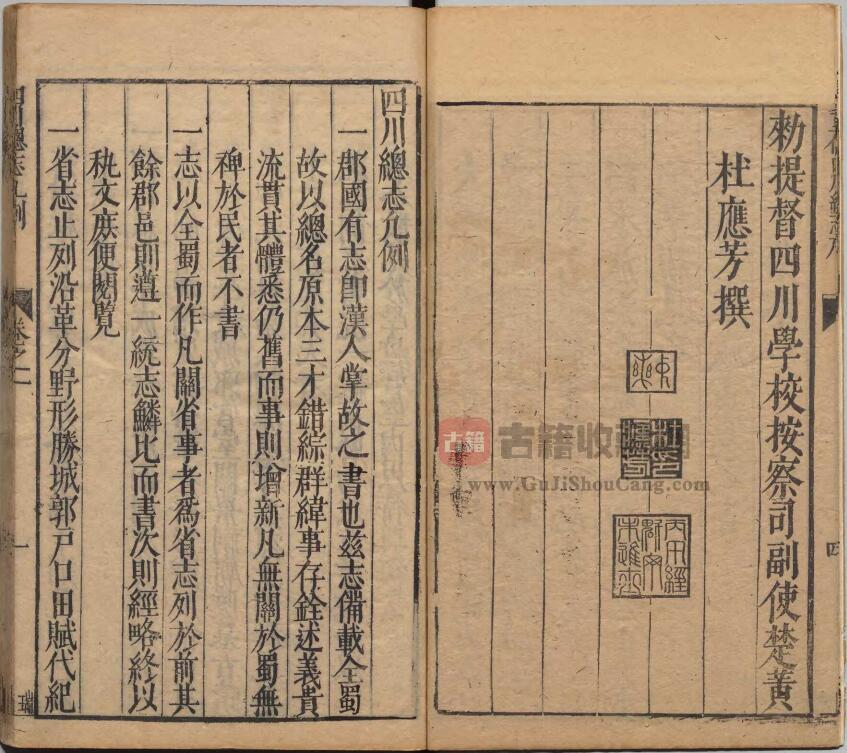 勑提督四川學校按察司副使楚黃
杜應芳撰
四
四川總志凡例
一郡國有志卽漢人掌故之書也茲志備載全蜀
故以總名原本三才錯綜群緯事存銓述義貴
流貫其體悉仍舊而事則增新凡無關於蜀無
裨於民者不書
一志以全蜀而作凡關省事者爲省志列於前其
餘郡邑則遵一統志鱗比而書次則經略終以
秇文庶便閱覽
一省志止列沿革分野形勝城郭戶口田賦代紀
四川總志凡例
卷之一
一
古籍
古籍收
www.GuJiShouCang.com